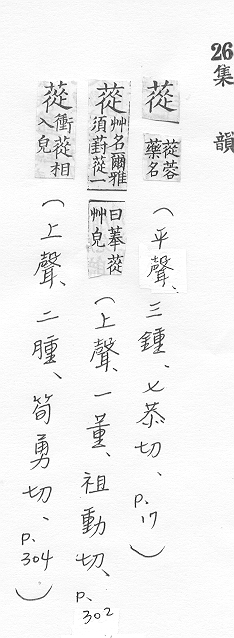 26
集
韻
蓯 蓯蓉藥名(平聲、三鍾、七恭切、p.17)
蓯 艸名爾雅須葑蓯一曰葑蓯艸皃(上聲、一董、祖動切、p.302)
蓯 衝蓯相入皃(上聲、二腫、筍勇切、p.304)